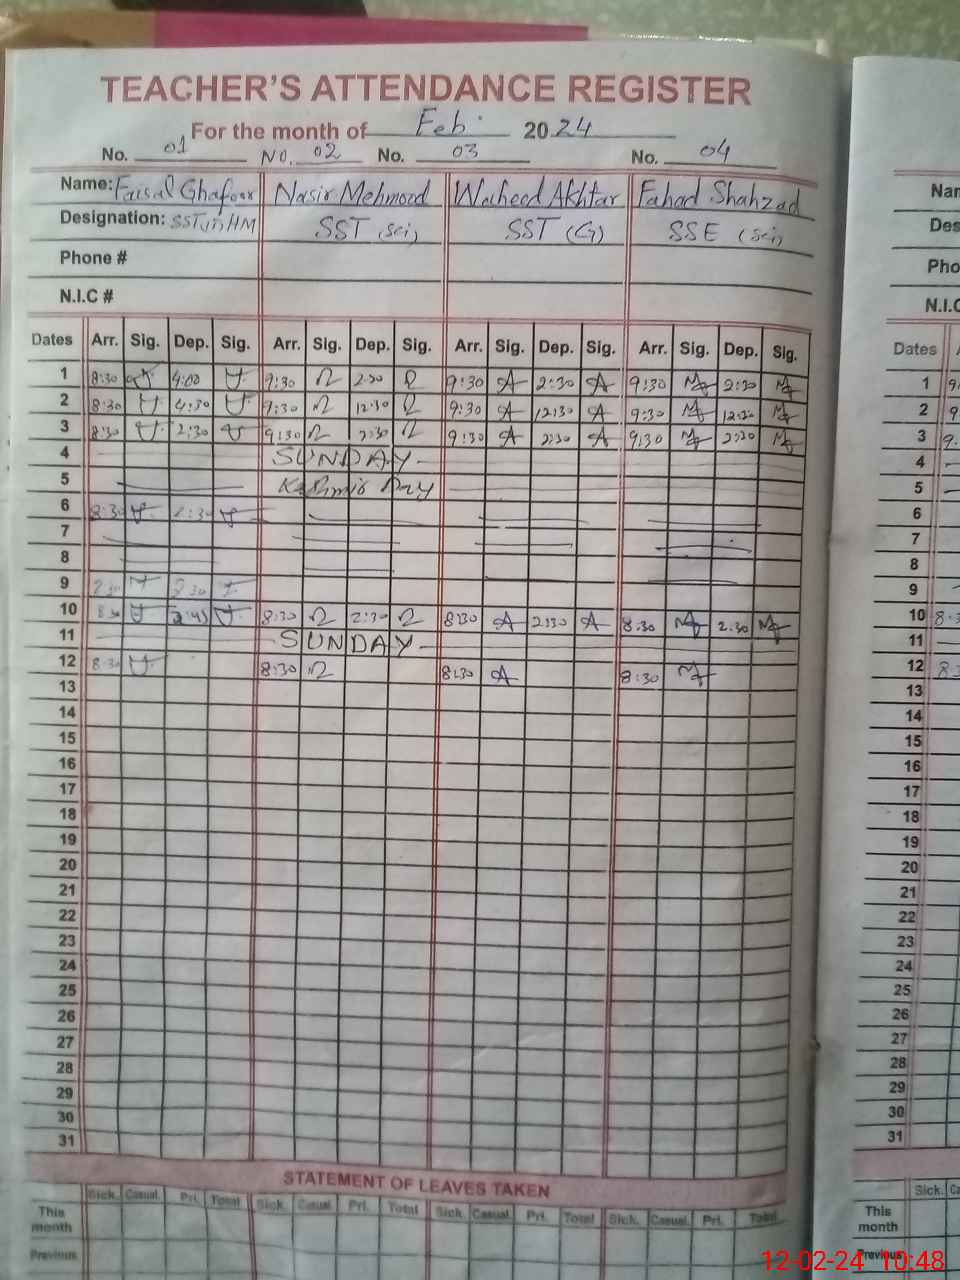 TEACHER'S ATTENDANCE REGISTER
For the month of Feb. 2024
No. 01 NO. 02 No. 03 No. 04
Name: Faisal Ghafoor Nasir Mehmood Waheed Akhtar Fahad Shahzad
Designation: SST HM SST (Sci) SST (G) SSE (Sci)
Phone #
N.I.C #
Dates Arr. Sig. Dep. Sig. Arr. Sig. Dep. Sig. Arr. Sig. Dep. Sig. Arr. Sig. Dep. Sig.
1 8:30 4:00 9:30 2:30 9:30 2:30 9:30 2:30
2 8:30 4:30 9:30 12:30 9:30 12:30 9:30 12:30
3 8:30 2:30 9:30 2:30 9:30 2:30 9:30 2:30
4 SUNDAY
5 Kashmir Day
6 8:30 2:30
7
8
9
10 8:30 2:45 8:30 2:30 8:30 2:30 8:30 2:30
11 SUNDAY
12 8:30 8:30 8:30 8:30
13
14
15
16
17
18
19
20
21
22
23
24
25
26
27
28
29
30
31
STATEMENT OF LEAVES TAKEN
Sick. Casual. Pri. Total Sick. Casual. Pri. Total Sick. Casual. Pri. Total Sick. Casual. Pri. Total
This month
Previous
Dates
1
2
3
4
5
6
7
8
9
10
11
12
13
14
15
16
17
18
19
20
21
22
23
24
25
26
27
28
29
30
31
Sick.
This month
Previous
12-02-24 10:48